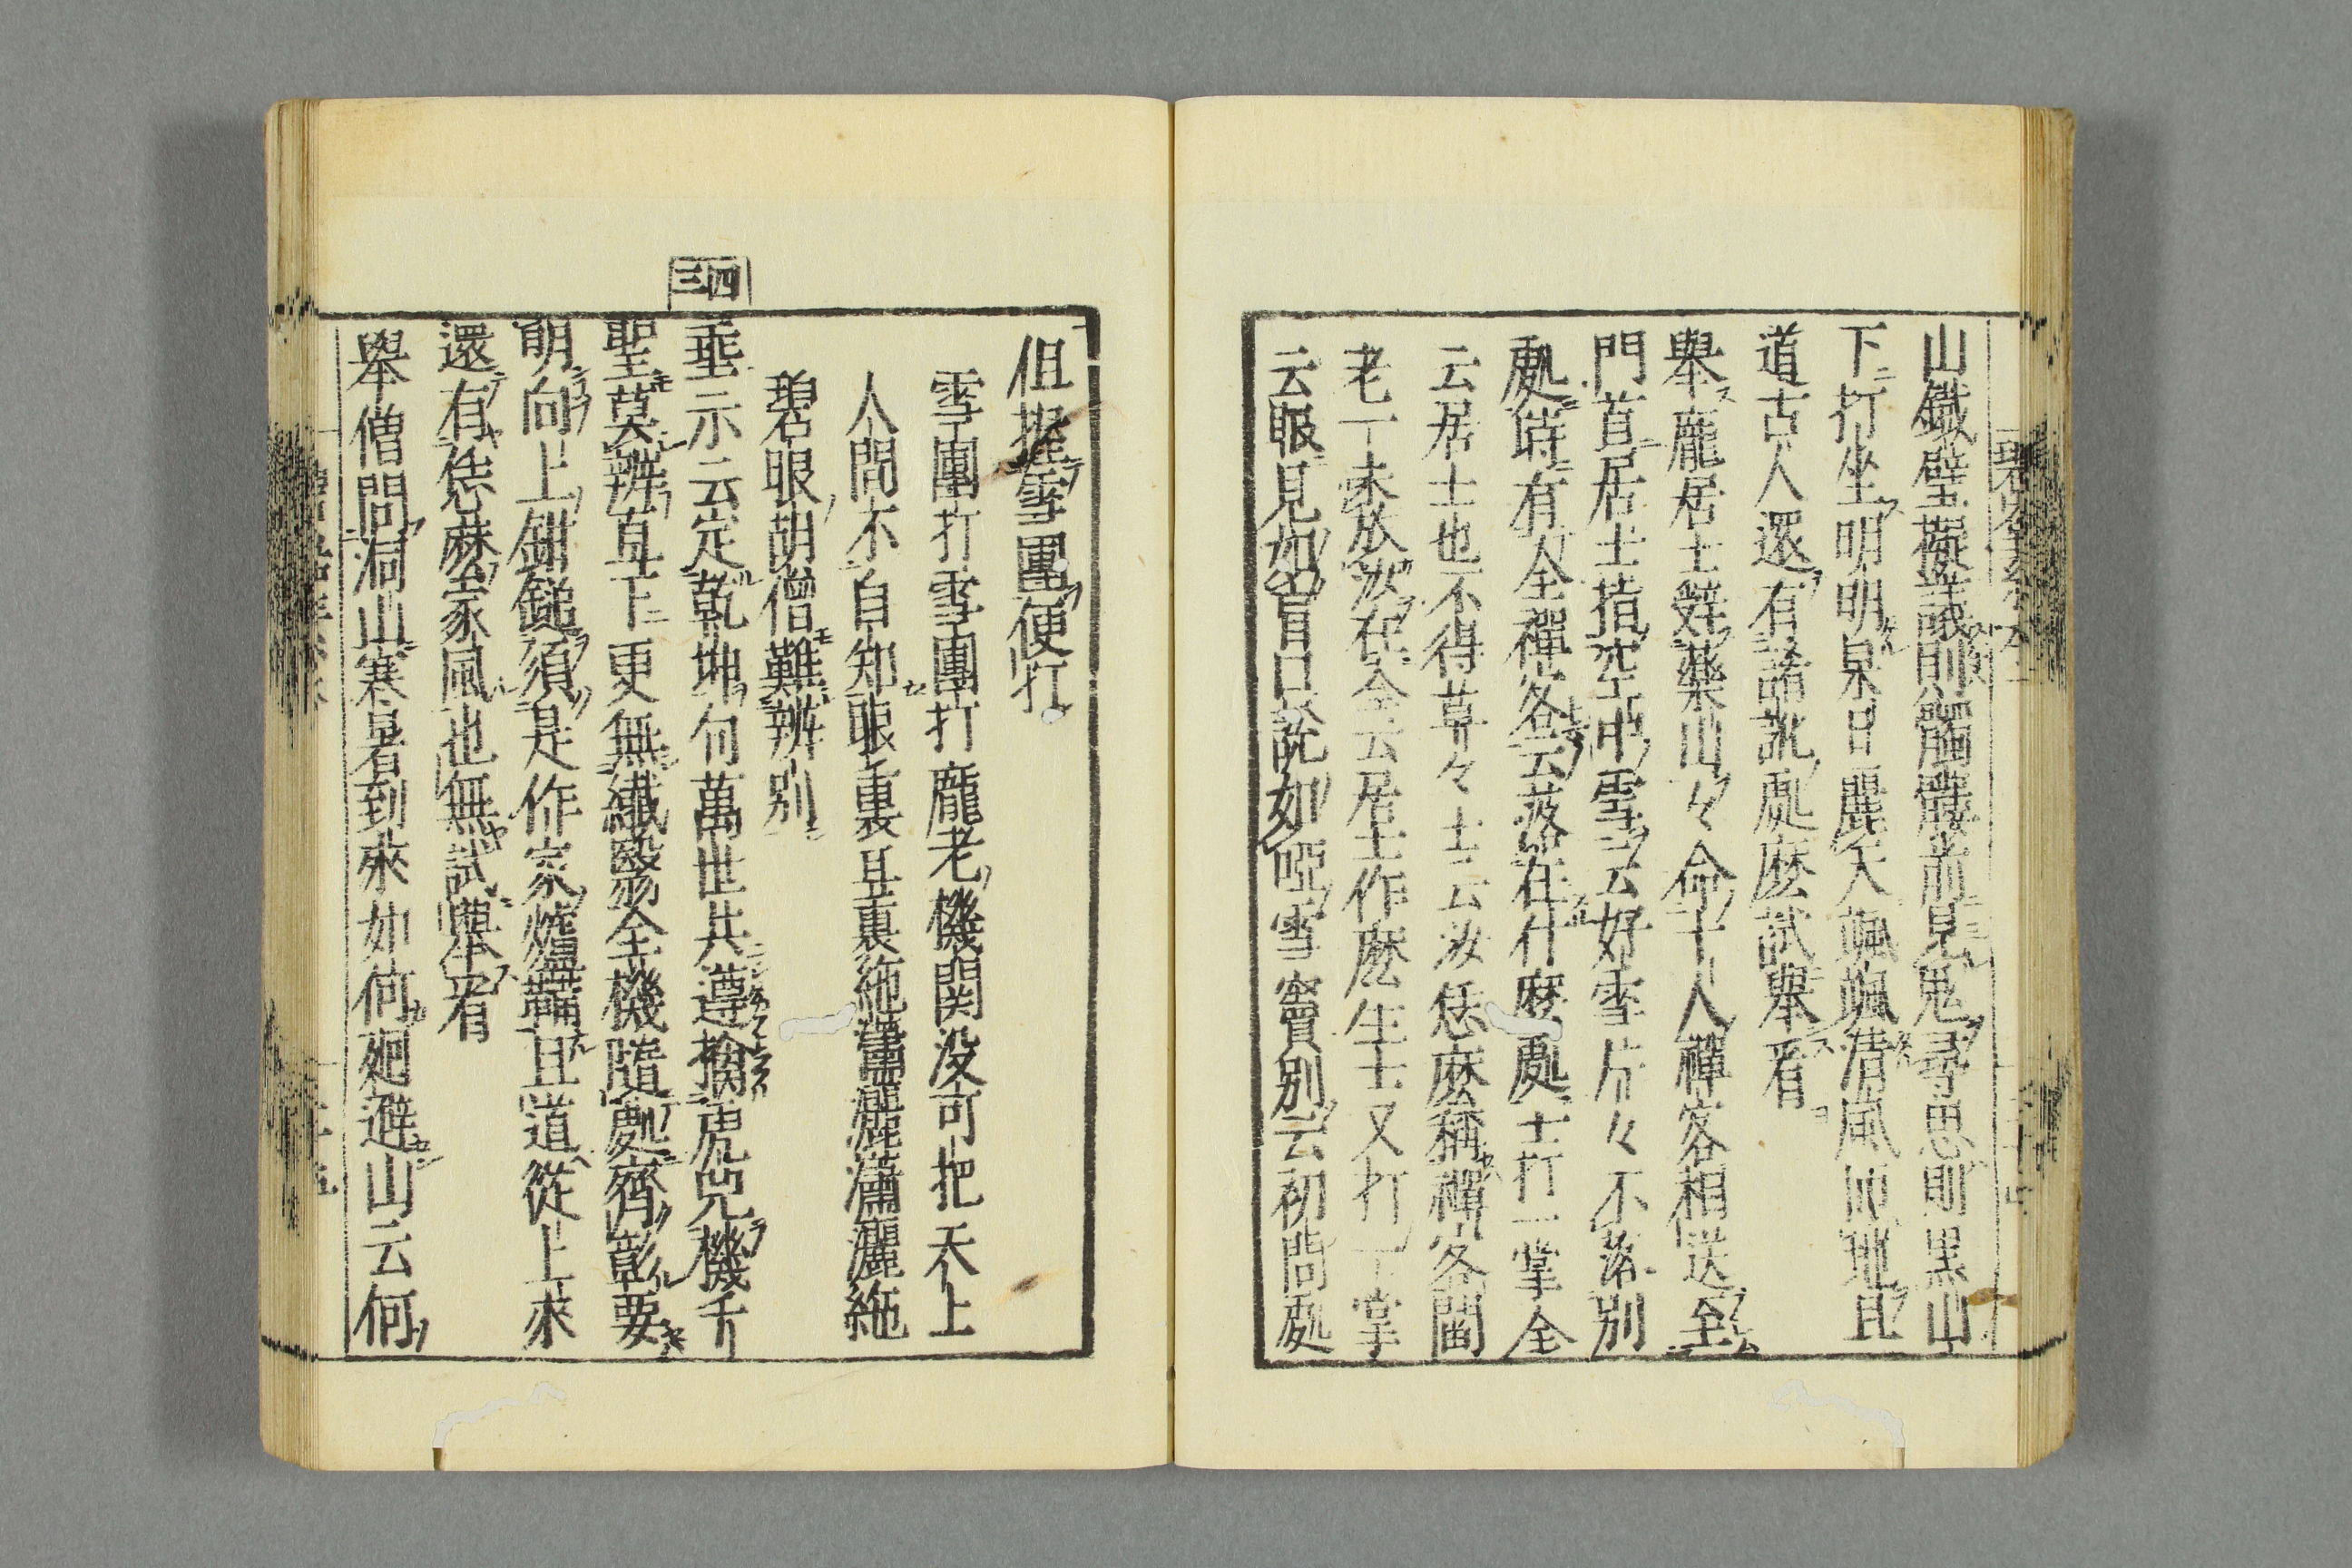 山鐵壁擬議則髑髏前見鬼尋思則黑山
下打坐明明杲日麗天颯颯清風匝地且
道古人還有誵訛處麽試舉看
舉龐居士辭藥山々命十人禪客相送至
門首居士指空中雪云好雪片々不落別
處時有全禪客云落在什麽處士打一掌全
云居士也不得草々士云汝恁麽稱禪客閻
老子未放汝在全云居士作麽生士又打一掌
云眼見如盲口說如啞雪竇別云初問處
但握雪團便打
雪團打雪團打龐老機関没可把天上
人間不自知眼裏耳裏絶瀟灑瀟灑絶
碧眼胡僧難辨別
四三
垂示云定乾坤句萬世共遵擒虎兕機千
聖莫辨直下更無纖翳全機隨處齊彰要
明向上鉗鎚須是作家爐鞴且道從上來
還有恁麽家風也無試舉看
舉僧問洞山寒暑到來如何廻避山云何